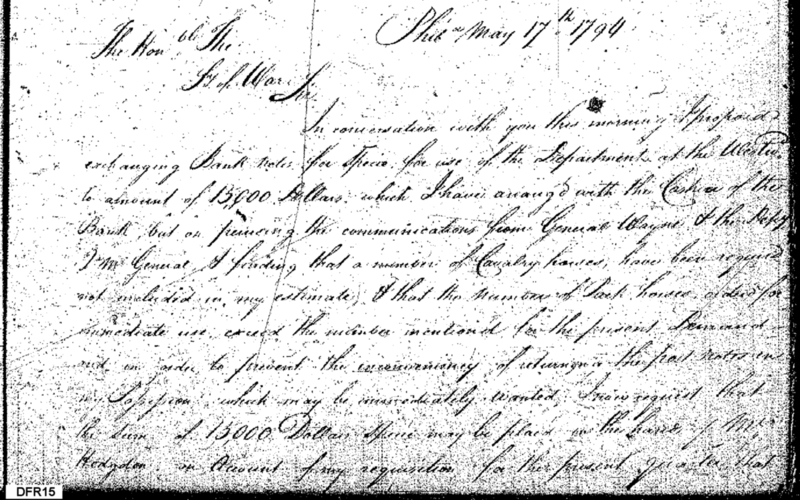 Phila May 17th 1794
The Honbl The
Sy. of War Sir,
In conversation with you this morning I proposed
exchanging Bank notes for Specie for use of the Department at the Westw
to amount of 15,000 Dollars, which I have arranged with the Cashier of the
Bank, but on perusing the communications from General Wayne & the Depy
Q M General, & finding that a number of Cavalry horses, have been required
not included in my estimate, & that the number of Pack horses, orderd for
immediate use, exceed the number mentioned for the present Demand
and in order to prevent the inconveniency of returning the post notes in
my Possession, which may be immediately wanted, I now request that
the Sum of 15000 Dollars Specie may be placed in the hands of Mr
Hodgdon, on Account of my requisition for the present quarter, that
DFR15